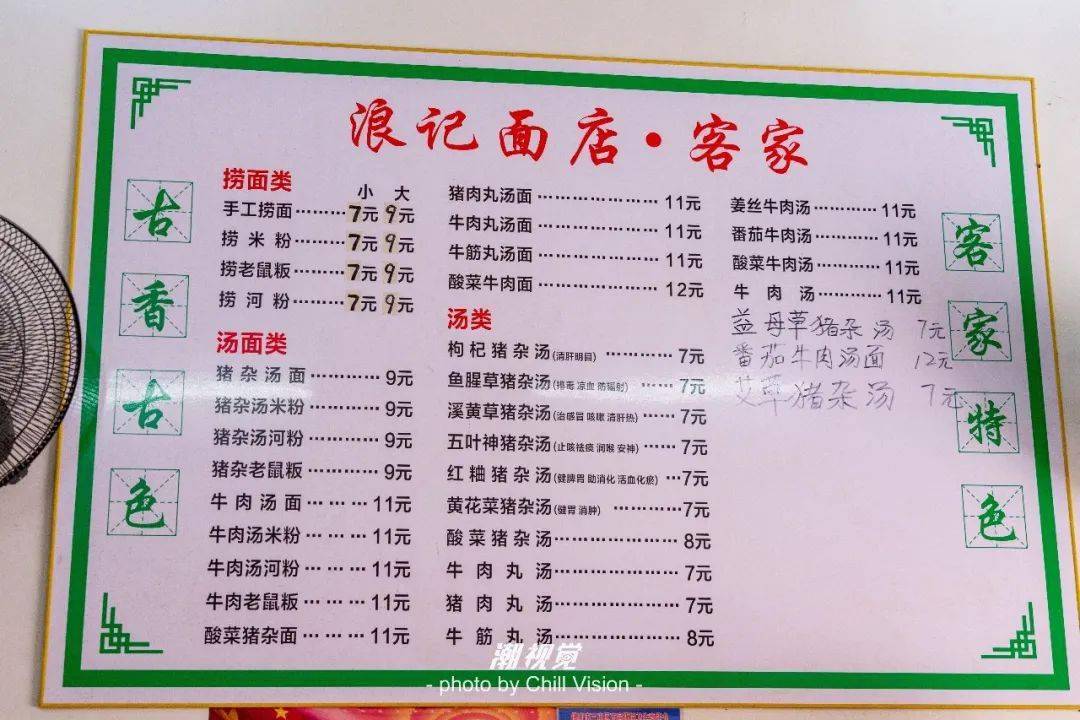 浪记面店·客家
古香古色
捞面类
小 大
手工捞面………7元 9元
捞米粉………7元 9元
捞老鼠粄………7元 9元
捞河粉………7元 9元
汤面类
猪杂汤面………9元
猪杂汤米粉………9元
猪杂汤河粉………9元
猪杂老鼠粄………9元
牛肉汤面………11元
牛肉汤米粉………11元
牛肉汤河粉………11元
牛肉老鼠粄………11元
酸菜猪杂面………11元
猪肉丸汤面………11元
牛肉丸汤面………11元
牛筋丸汤面………11元
酸菜牛肉面………12元
汤类
枸杞猪杂汤(清肝明目)………7元
鱼腥草猪杂汤(排毒 凉血 防辐射)……7元
溪黄草猪杂汤(治感冒 咳嗽 清肝热)……7元
五叶神猪杂汤(止咳祛痰 润喉 安神)……7元
红粬猪杂汤(健脾胃 助消化 活血化瘀)…7元
黄花菜猪杂汤(健胃 消肿)………7元
酸菜猪杂汤………8元
牛肉丸汤………7元
猪肉丸汤………7元
牛筋丸汤………8元
姜丝牛肉汤………11元
番茄牛肉汤………11元
酸菜牛肉汤………11元
牛肉汤………11元
益母草猪杂汤 7元
番茄牛肉汤面 12元
艾草猪杂汤 7元
客家特色
潮视觉
- photo by Chill Vision -